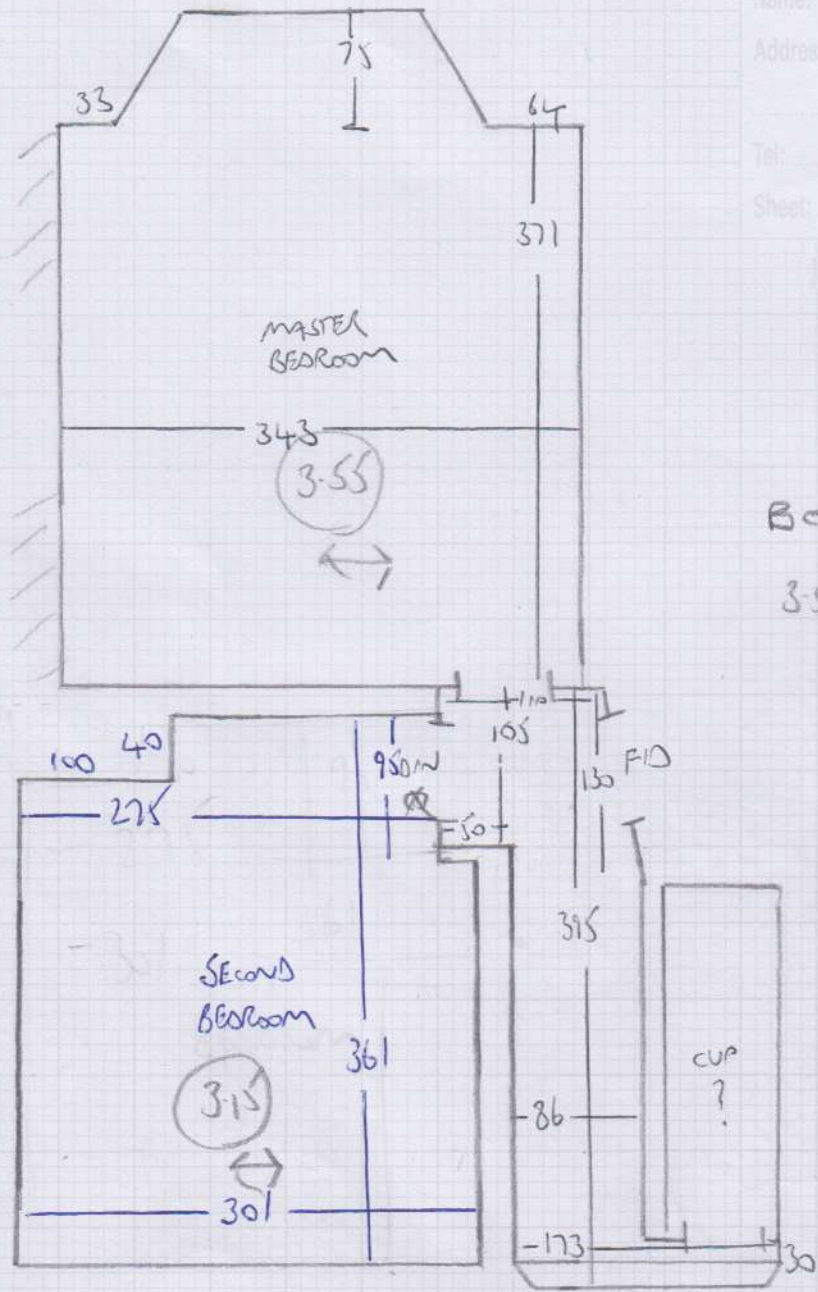 Name:
Addres
Tel:
Sheet:
75
33
64
371
MASTER
BEDROOM
343
3.55
BO
3.5
110
105
40
100
95
DIN
130
F/D
275
50
395
SECOND
BEDROOM
361
CUP
?
3.15
86
301
173
30